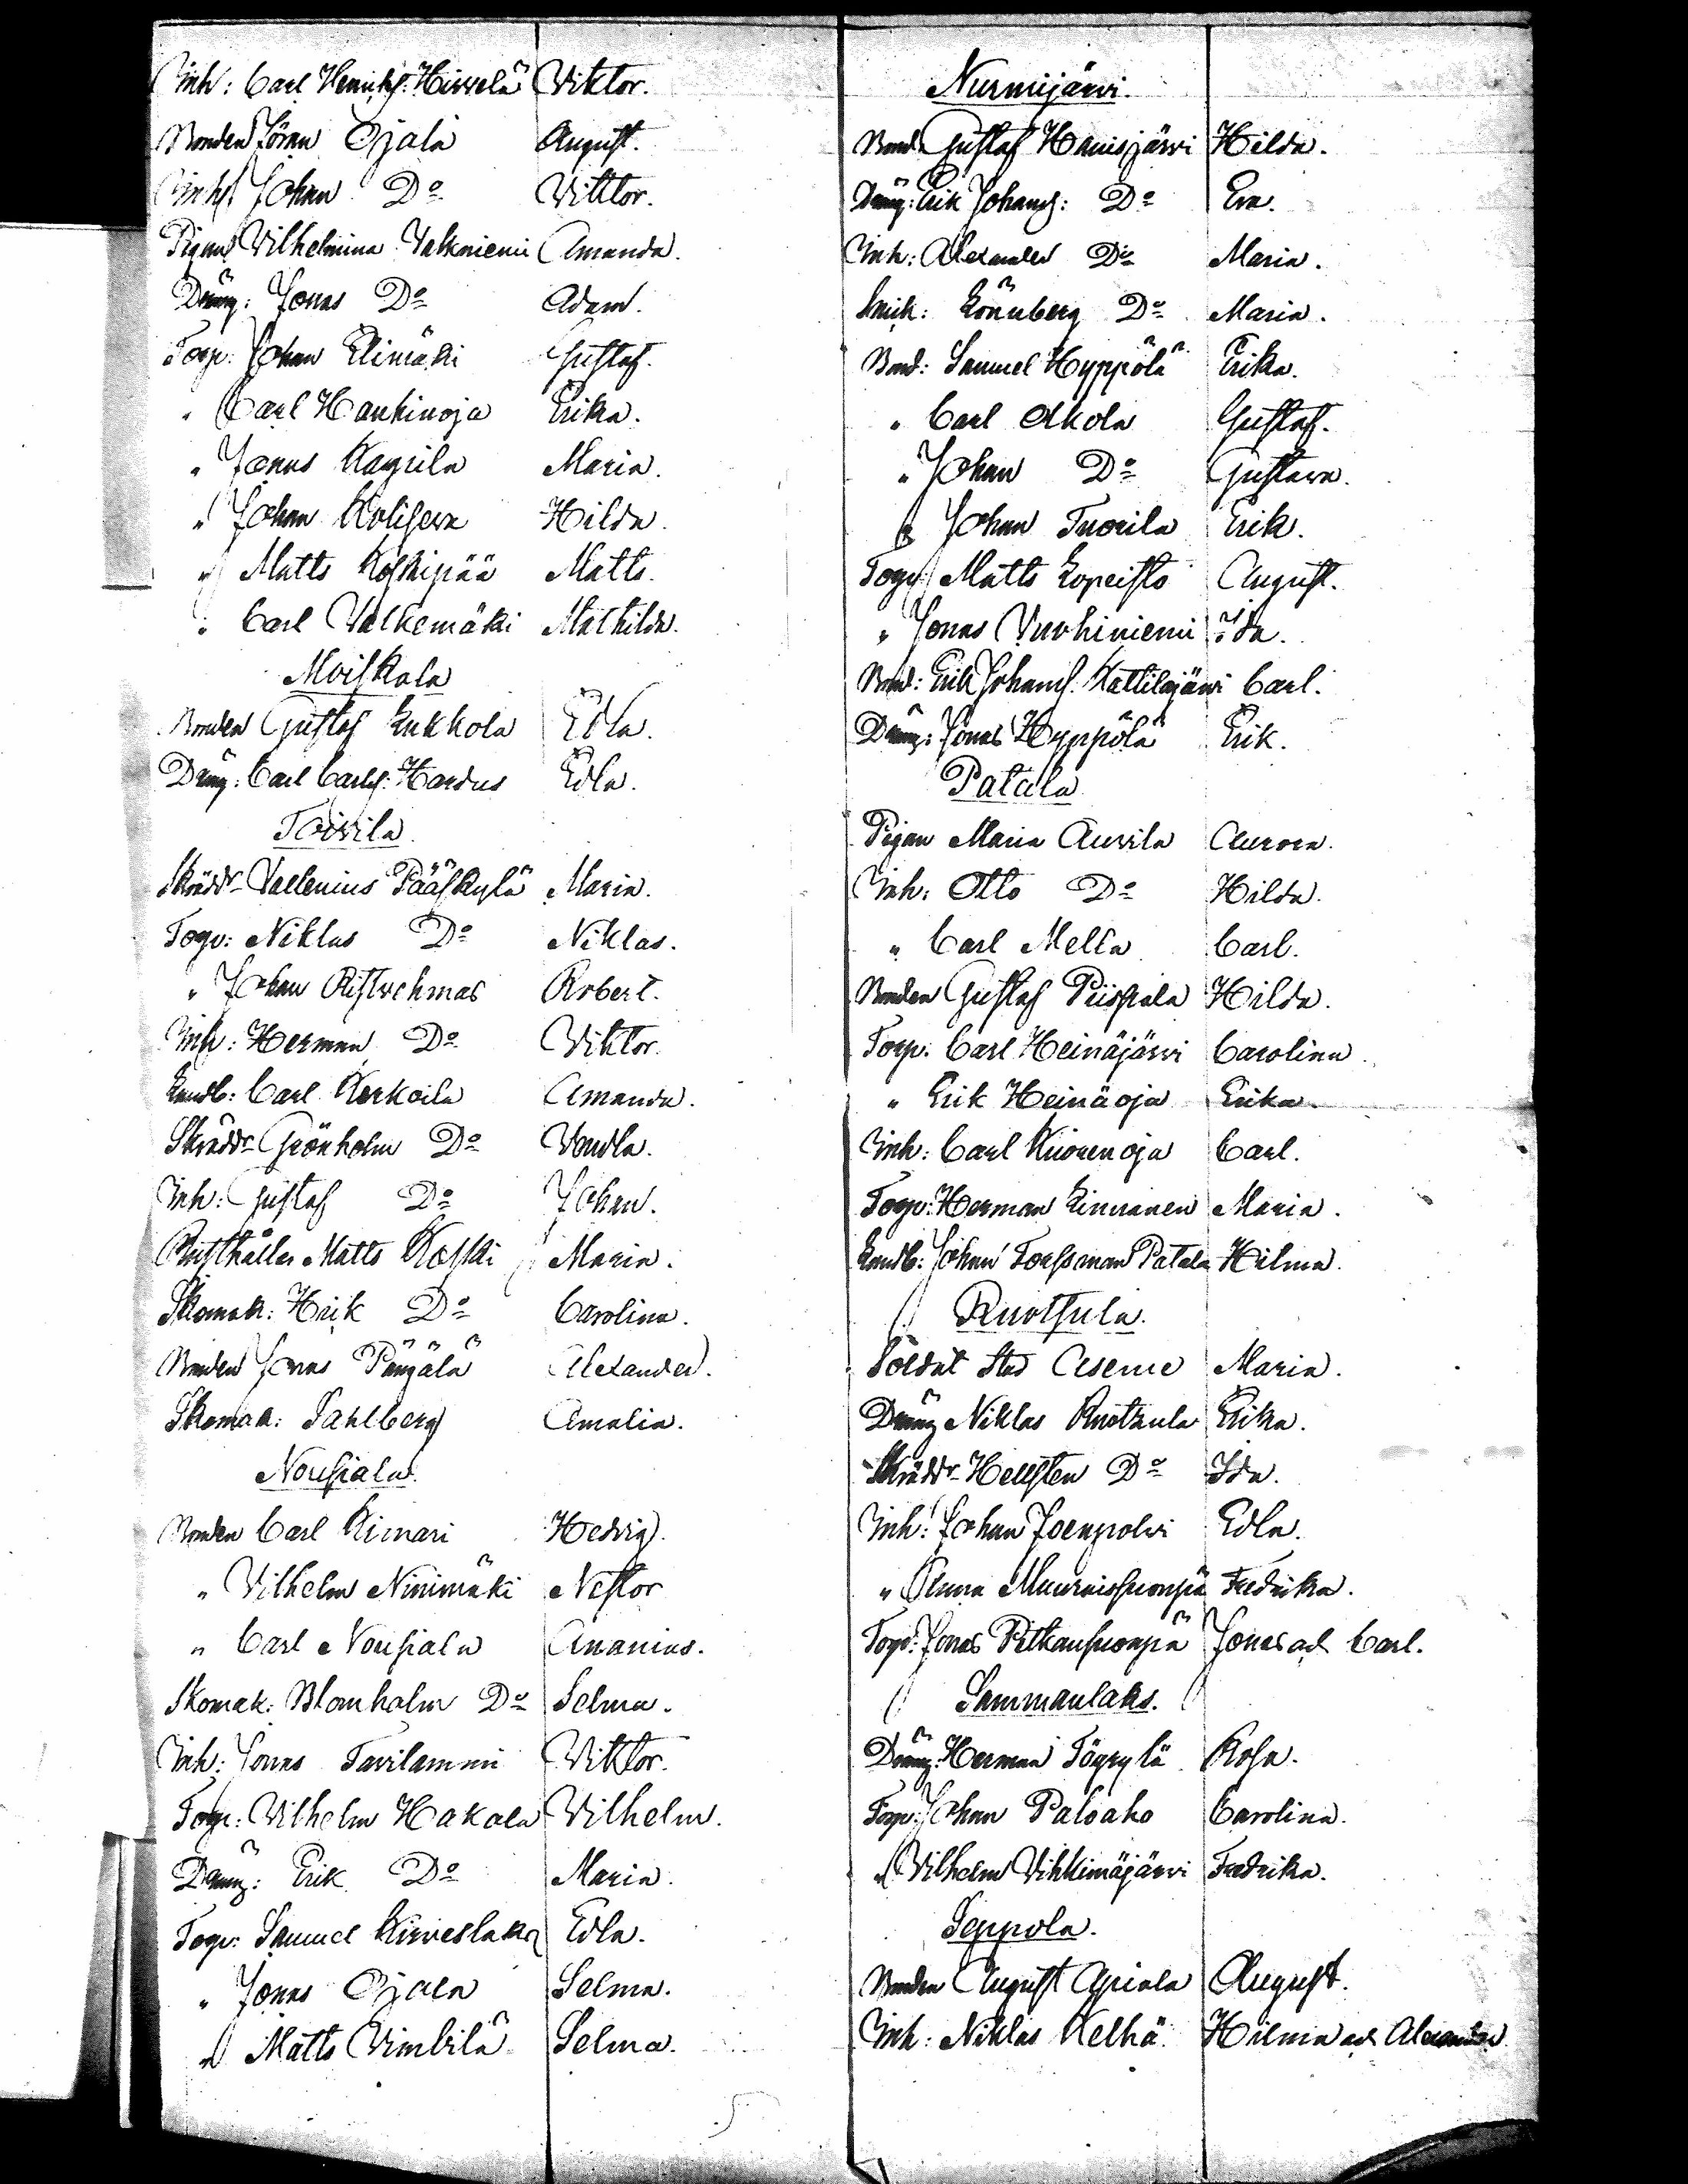 Inh: Carl Henrikss: Hirvelä Viktor.
Bonden Jöran Ojala August.
Inhs Johan Do Viktor.
Pigan Vilhelmina Valkoniemi Amanda.
Dräng: Jonas Do Adam.
Torp: Johan Elimäki Gustaf.
" Carl Hankinoja Erika.
" Jonas Kaprila Maria.
" Johan Koliseva Hilda.
" Matts Koskipää Matts.
" Carl Valkemäki Mathilda.
Moiskala
Bonden Gustaf Lukkola Edla.
Dräng: Carl Carls: Hardus Edla.
Toivila
Skräddr Vallenius Pääskylä Maria.
Torp: Niklas Do Niklas.
" Johan Ristvehmas Robert.
Inh: Herman Do Viktor.
Landb: Carl Kerkoila Amanda.
Skräddr Grönholm Do Vendla.
Inh: Gustaf Do Johan.
Rusthåller Matts Koski Maria.
Skomak: Henrik Do Carolina.
Bonden Jonas Pänzälä Alexander.
Skomak: Dahlberg Amalia.
Nousiala.
Bonden Carl Kimari Hedvig.
" Vilhelm Ninimäki Nestor
" Carl Nousiala Ananias.
Skomak: Blomholm Do Selma.
Inh: Jonas Tavilammi Viktor.
Torp: Vilhelm Hakala Vilhelm.
Dräng: Erik Do Maria.
Torp: Samuel Kirveslaks Edla.
" Jonas Ojala Selma.
" Matts Vimbilä Selma.
Nurmijärvi.
Bond: Gustaf Hanisjärvi Hilda.
Dräng: Erik Johans: Do Eva.
Inh: Alexander Do Maria.
Smik: Lönnberg Do Maria.
Bond: Samuel Hyppölä Erika.
" Carl Akola Gustaf.
" Johan Do Gustava.
" Johan Tuorila Erik.
Torp: Matts Lopeisto August.
" Jonas Vuohiniemi Ida.
Bond: Erik Johans. Kattilajärvi Carl.
Dräng: Jonas Hyppölä Erik.
Patala
Pigan Maria Auvila Aurora.
Inh: Otto Do Hilda.
" Carl Mella Carl.
Bonden Gustaf Piispala Hilda.
Torp. Carl Heinäjärvi Carolina.
" Erik Heinäoja Erika.
Inh: Carl Kuorenoja Carl.
Torp: Herman Linnanen Maria.
Landb: Johan Forssman Patala Hilma.
Ruotsula.
Soldat Stad Aseme Maria.
Dräng Niklas Ruotzula Erika.
Skräddr Hellsten Do Ida.
Inh: Johan Joenpolvi Edla.
" Anna Muuraissuonpä Fredrika.
Torp: Jonas Pitkänsuonpä Jonas och Carl.
Sammanlaks.
Dräng: Herman Töyrylä Rosa.
Torp: Johan Paloaho Carolina.
" Vilhelm Vihkimäjärvi Fredrika.
Seppola.
Bonden August Apiala August.
Inh: Niklas Kelhä Hilma och Alexander.